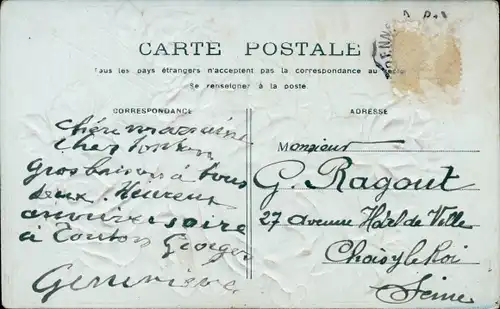 CARTE POSTALE
Tous les pays étrangers n'acceptent pas la correspondance au
Se renseigner à la poste.
CORRESPONDANCE
chère marraine
cher tonton
gros baison à tous
deux. Heureux
anniversaire
à Tonton Georges
Geneviève
ADRESSE
Monsieur
G. Ragout
27 avenue Hôtel de Ville
Choisy le Roi
Seine